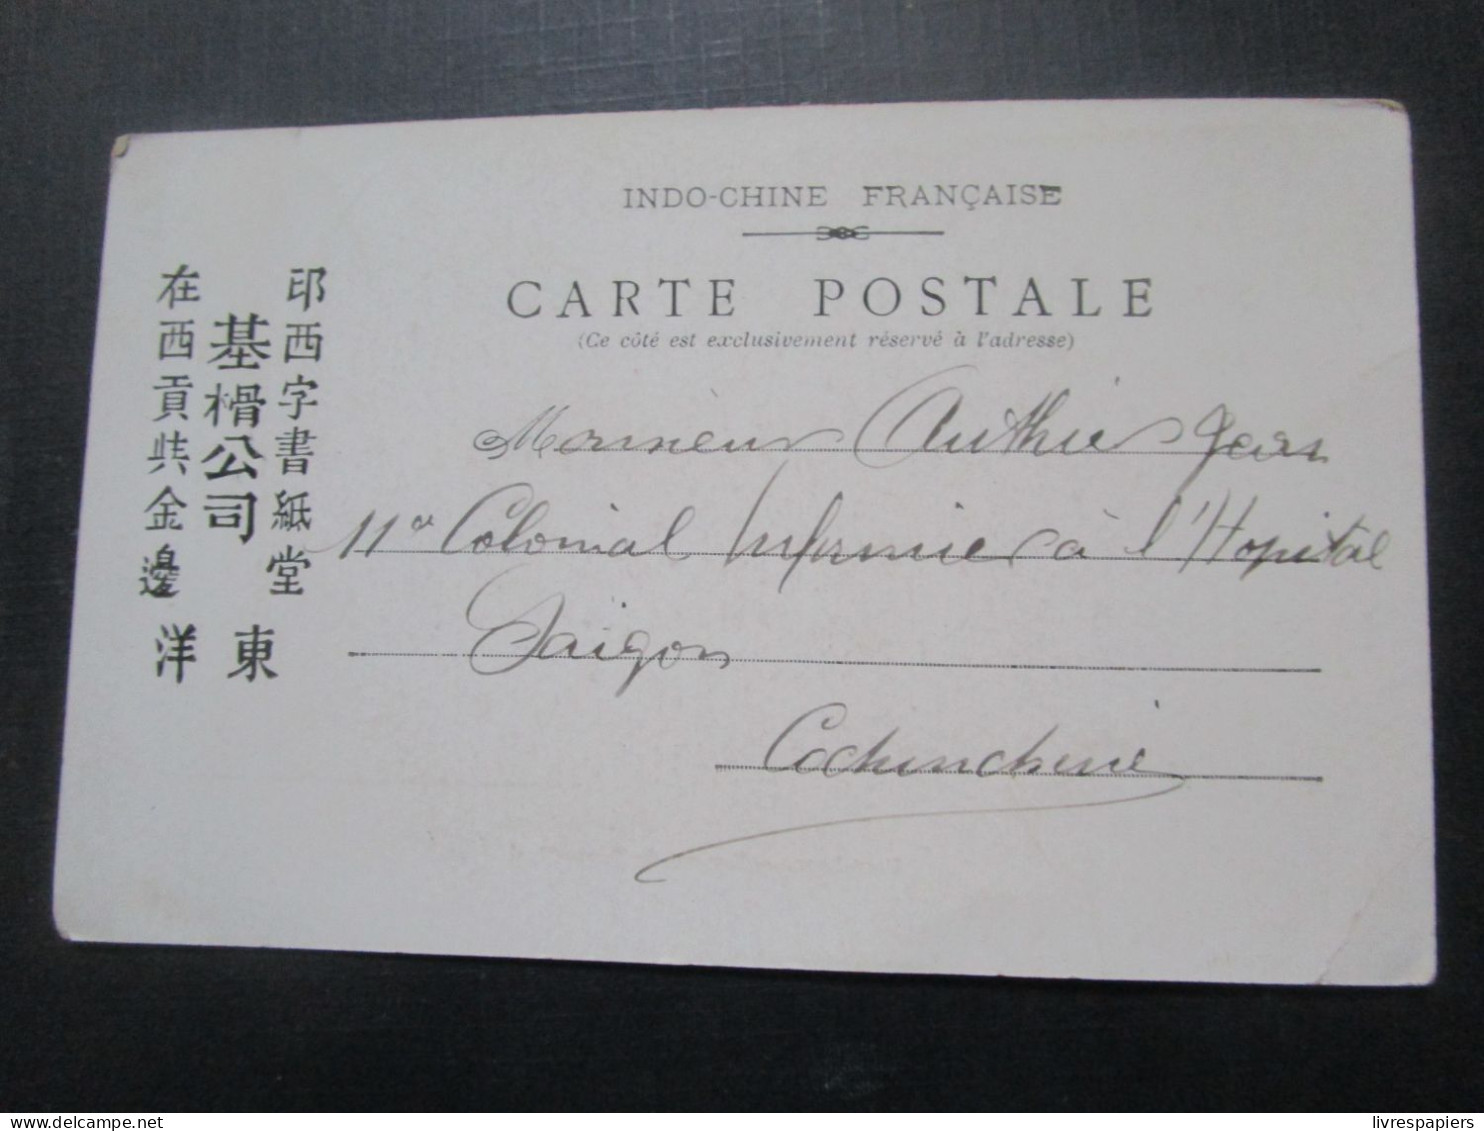 INDO-CHINE FRANÇAISE
CARTE POSTALE
(Ce côté est exclusivement réservé à l'adresse)
印西字書紙堂
基榾公司
在西貢共金邊
東洋
Monsieur Authié Jean
11e Colonial Infirmier à l'Hopital
Saïgon
Cochinchine
livrespapiers